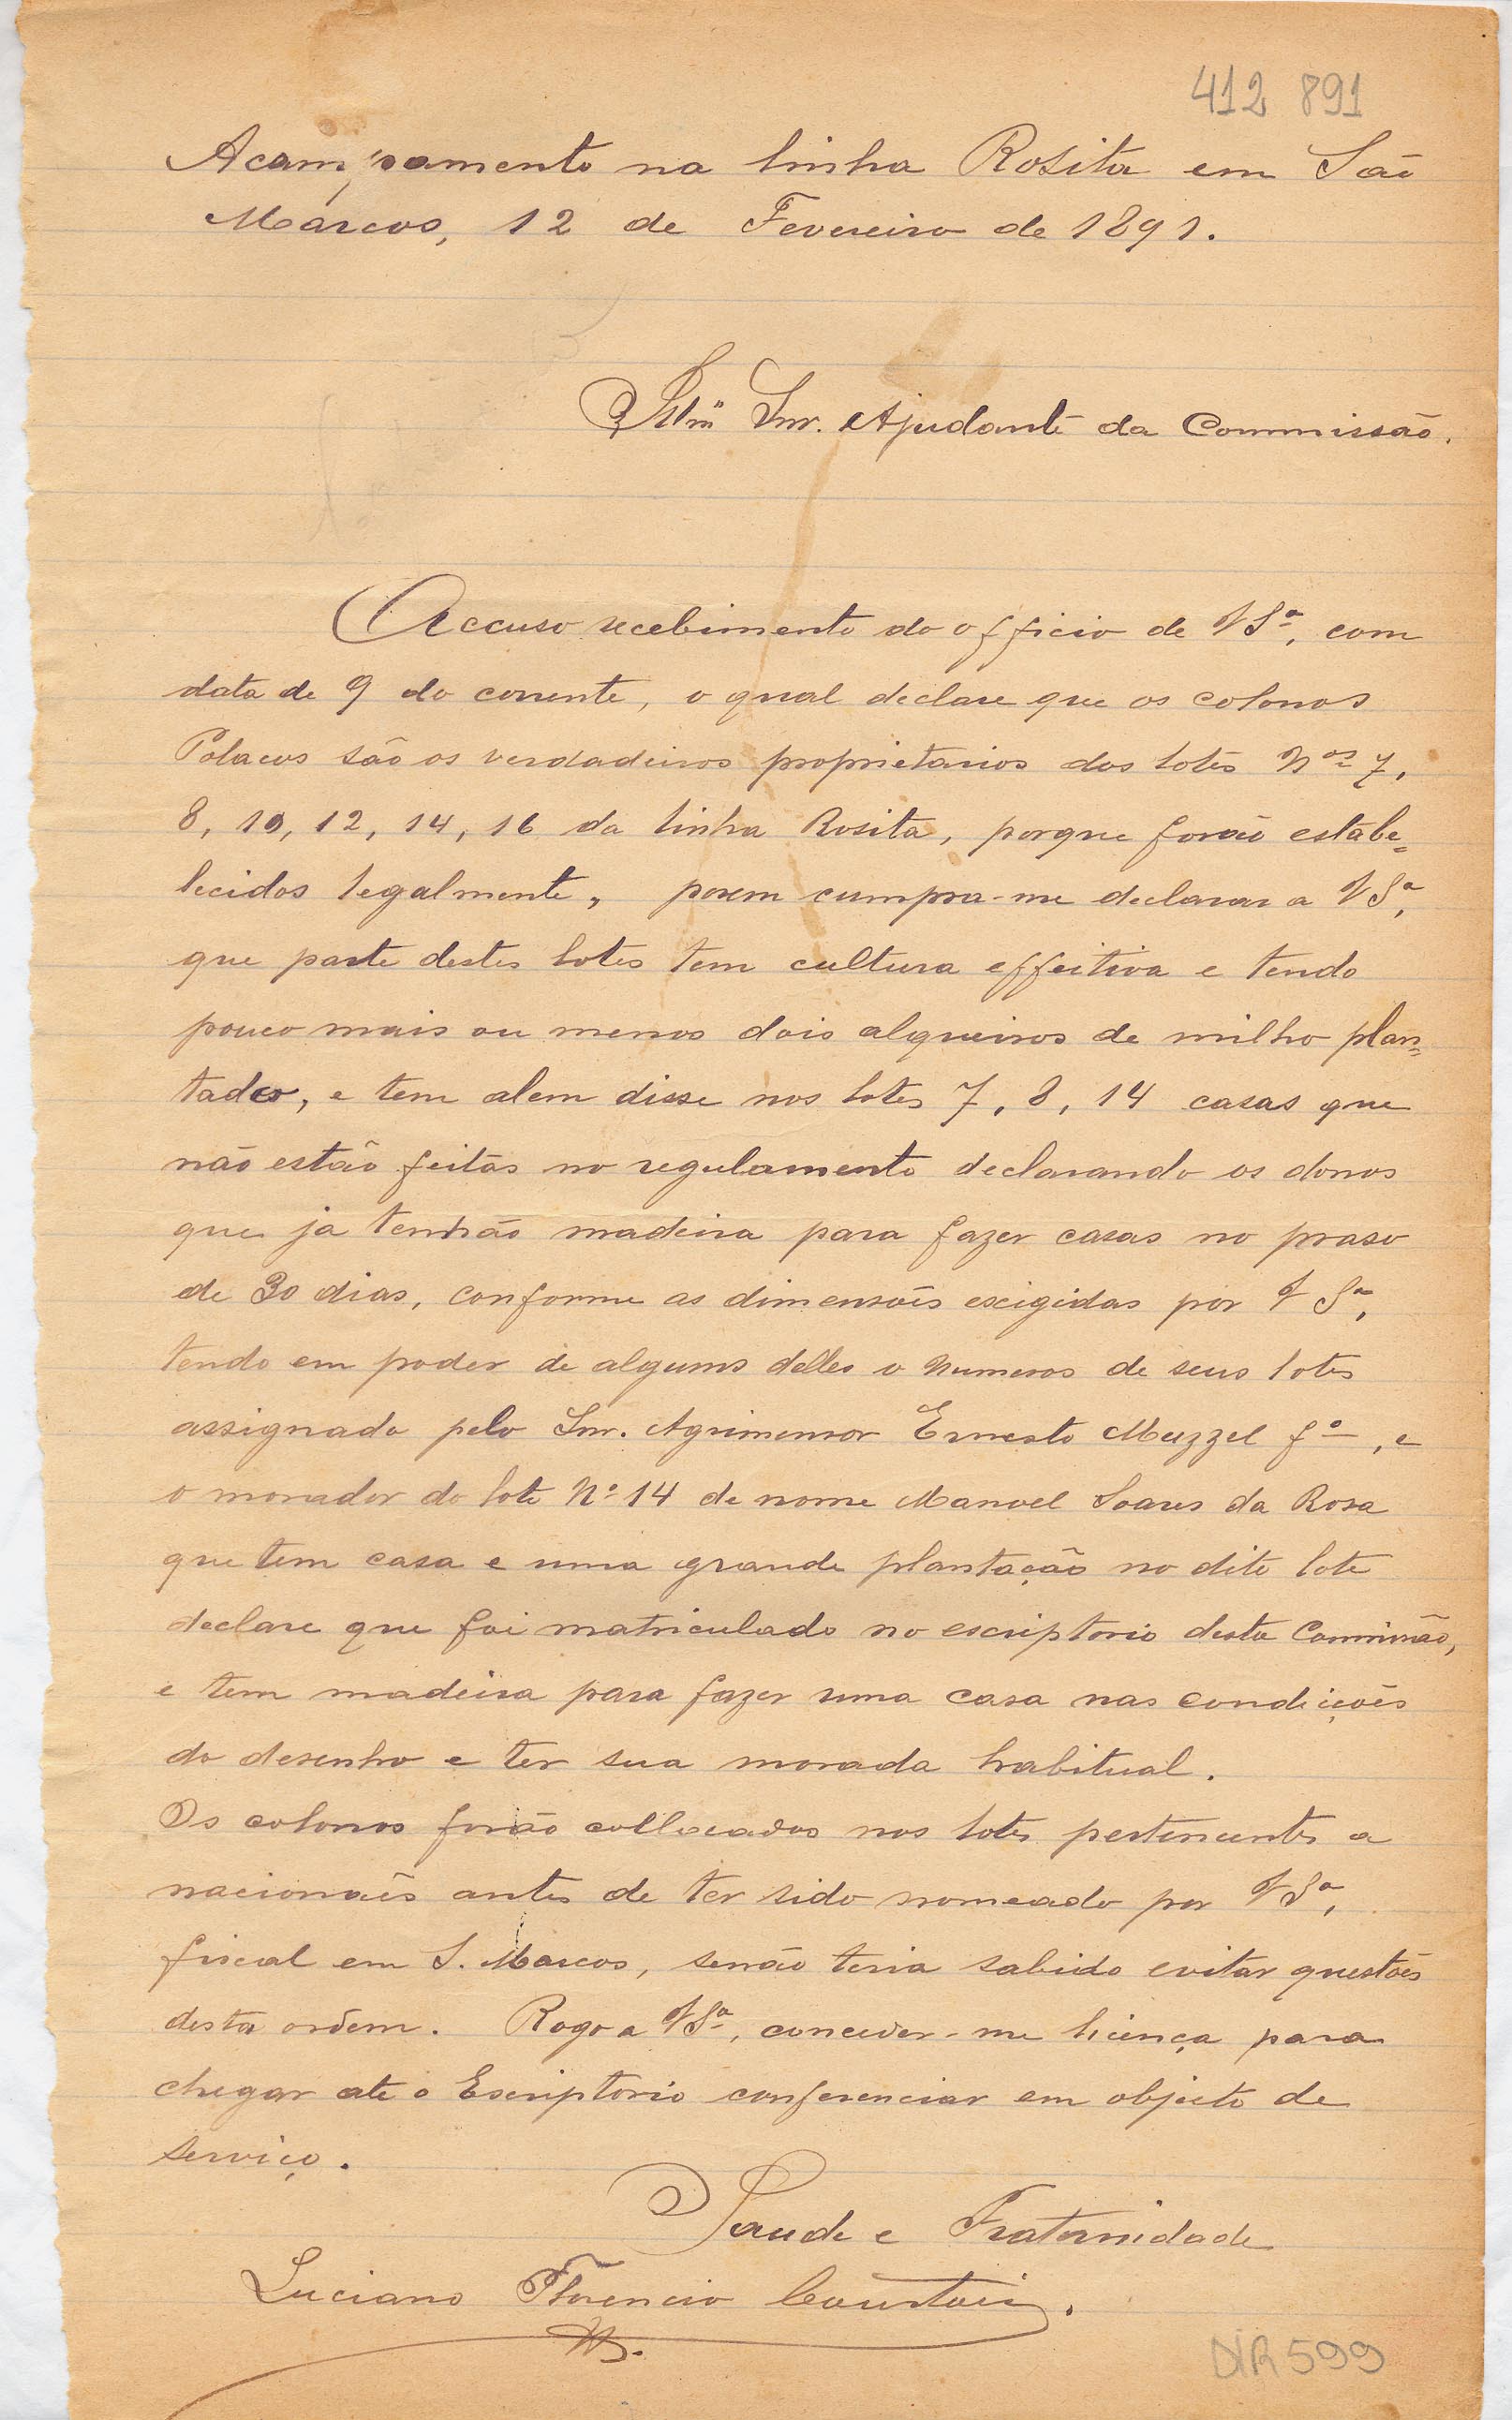 412 891
Acampamento na linha Rosita em São
Marcos, 12 de Fevereiro de 1891.
Illmº Snr. Ajudante da Commissão.
Accuso recebimento do officio de VSª, com
data de 9 do corrente, o qual declare que os colonos
Polacos são os verdadeiros proprietarios dos lotes Nos 7,
8, 10, 12, 14, 16 da linha Rosita, porque forão estabe=
lecidos legalmente, porem cumpra-me declarar a VSª,
que parte destes lotes tem cultura effeitiva e tendo
pouco mais ou menos dois alqueiros de milho plan=
tados, e tem alem disse nos lotes 7, 8, 14 casas que
não estão feitas no regulamento declarando os donos
que ja tenhão madeira para fazer casas no praso
de 30 dias, conforme as dimensões exigidas por VSª,
tendo em poder de algums delles o numeros de seus lotes
assignado pelo Snr. Agrimensor Ernesto Muzzel fº, e
o morador do lote Nº 14 de nome Manoel Soares da Rosa
que tem casa e uma grande plantação no dito lote
declare que foi matriculado no escriptorio desta Commissão,
e tem madeira para fazer uma casa nas condições
do desenho e ter sua morada habitual.
Os colonos forão collocados nos lotes pertencentes a
nacionaes antes de ter sido nomeado por VSª,
fiscal em S. Marcos, senão teria sabido evitar questões
desta ordem. Rogo a VSª, conceder-me licença para
chegar ate o Escriptorio conferenciar em objecto de
serviço.
Saude e Fraternidade
Luciano Florencio Courtois.
DIR 599